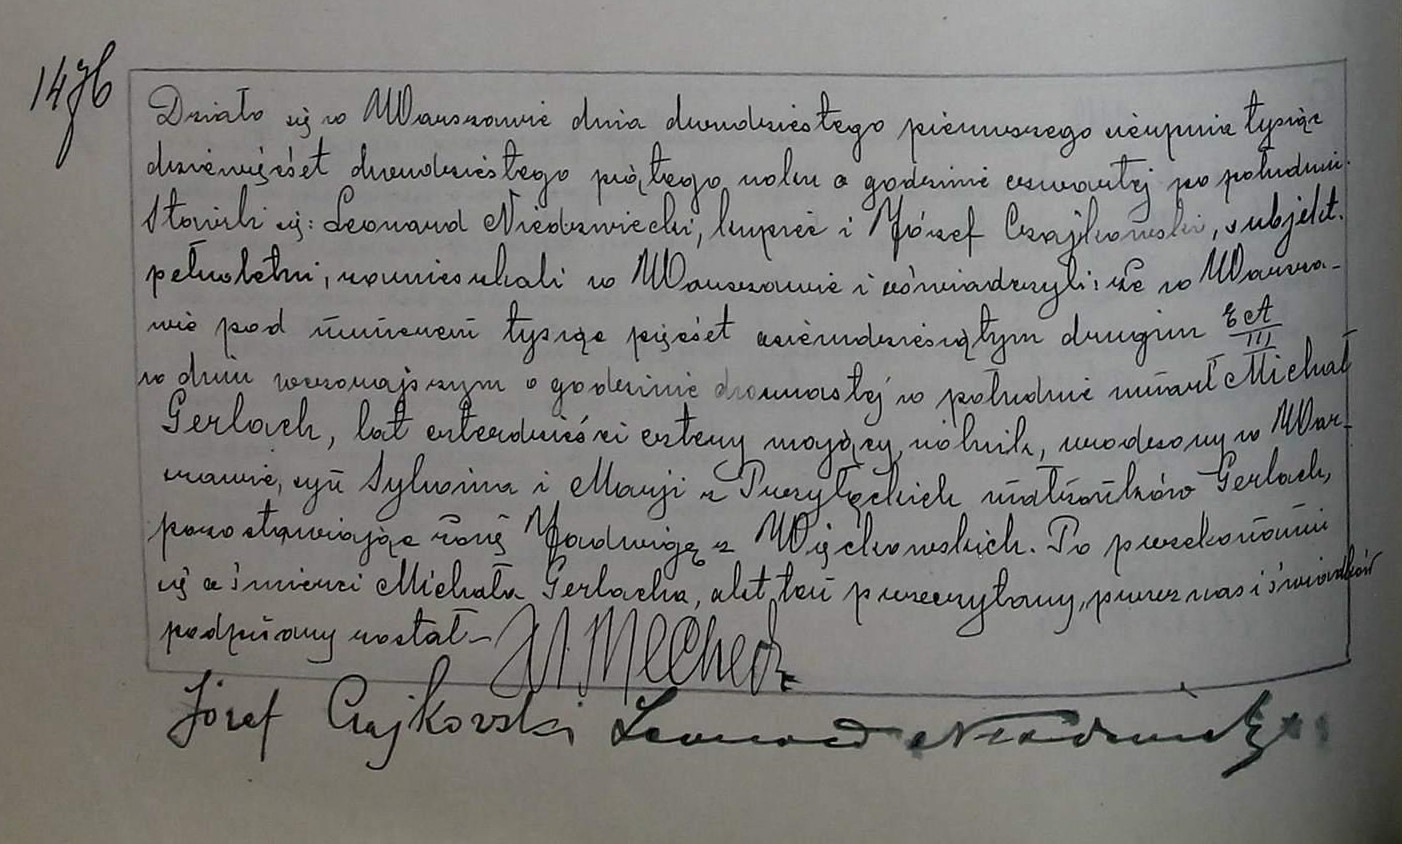 1476
Działo się w Warszawie dnia dwudziestego pierwszego sierpnia tysiąc
dziewięćset dwudziestego piątego roku o godzinie czwartej po południu.
Stawili się: Leonard Niedzwiecki, kupiec i Józef Czajkowski, subjekt.
pełnoletni, zamieszkali w Warszawie i oświadczyli: że w Warsza-
wie pod numerem tysiąc pięćset osiemdziesiątym drugim
w dniu wczorajszym o godzinie dwunastej w południe umarł Michał
Gerlach, lat czterdzieści cztery mający, rolnik, urodzony w War-
szawie, syn Sylwina i Marji z Przyłęckich małżonków Gerlach,
pozostawiając żonę Jadwigę z Więckowskich. Po przekonaniu
się o śmierci Michała Gerlacha, akt ten przeczytany, przez nas i świadków
podpisany został
Józef Czajkowski Leonard